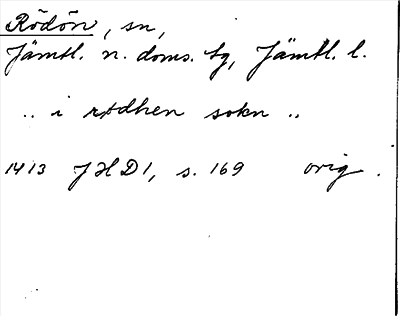 Rödön, sn,
Jämtl. n. doms. tg, Jämtl. l.
.. i rødhen sokn ..
1413 JHD 1, s. 169 orig.